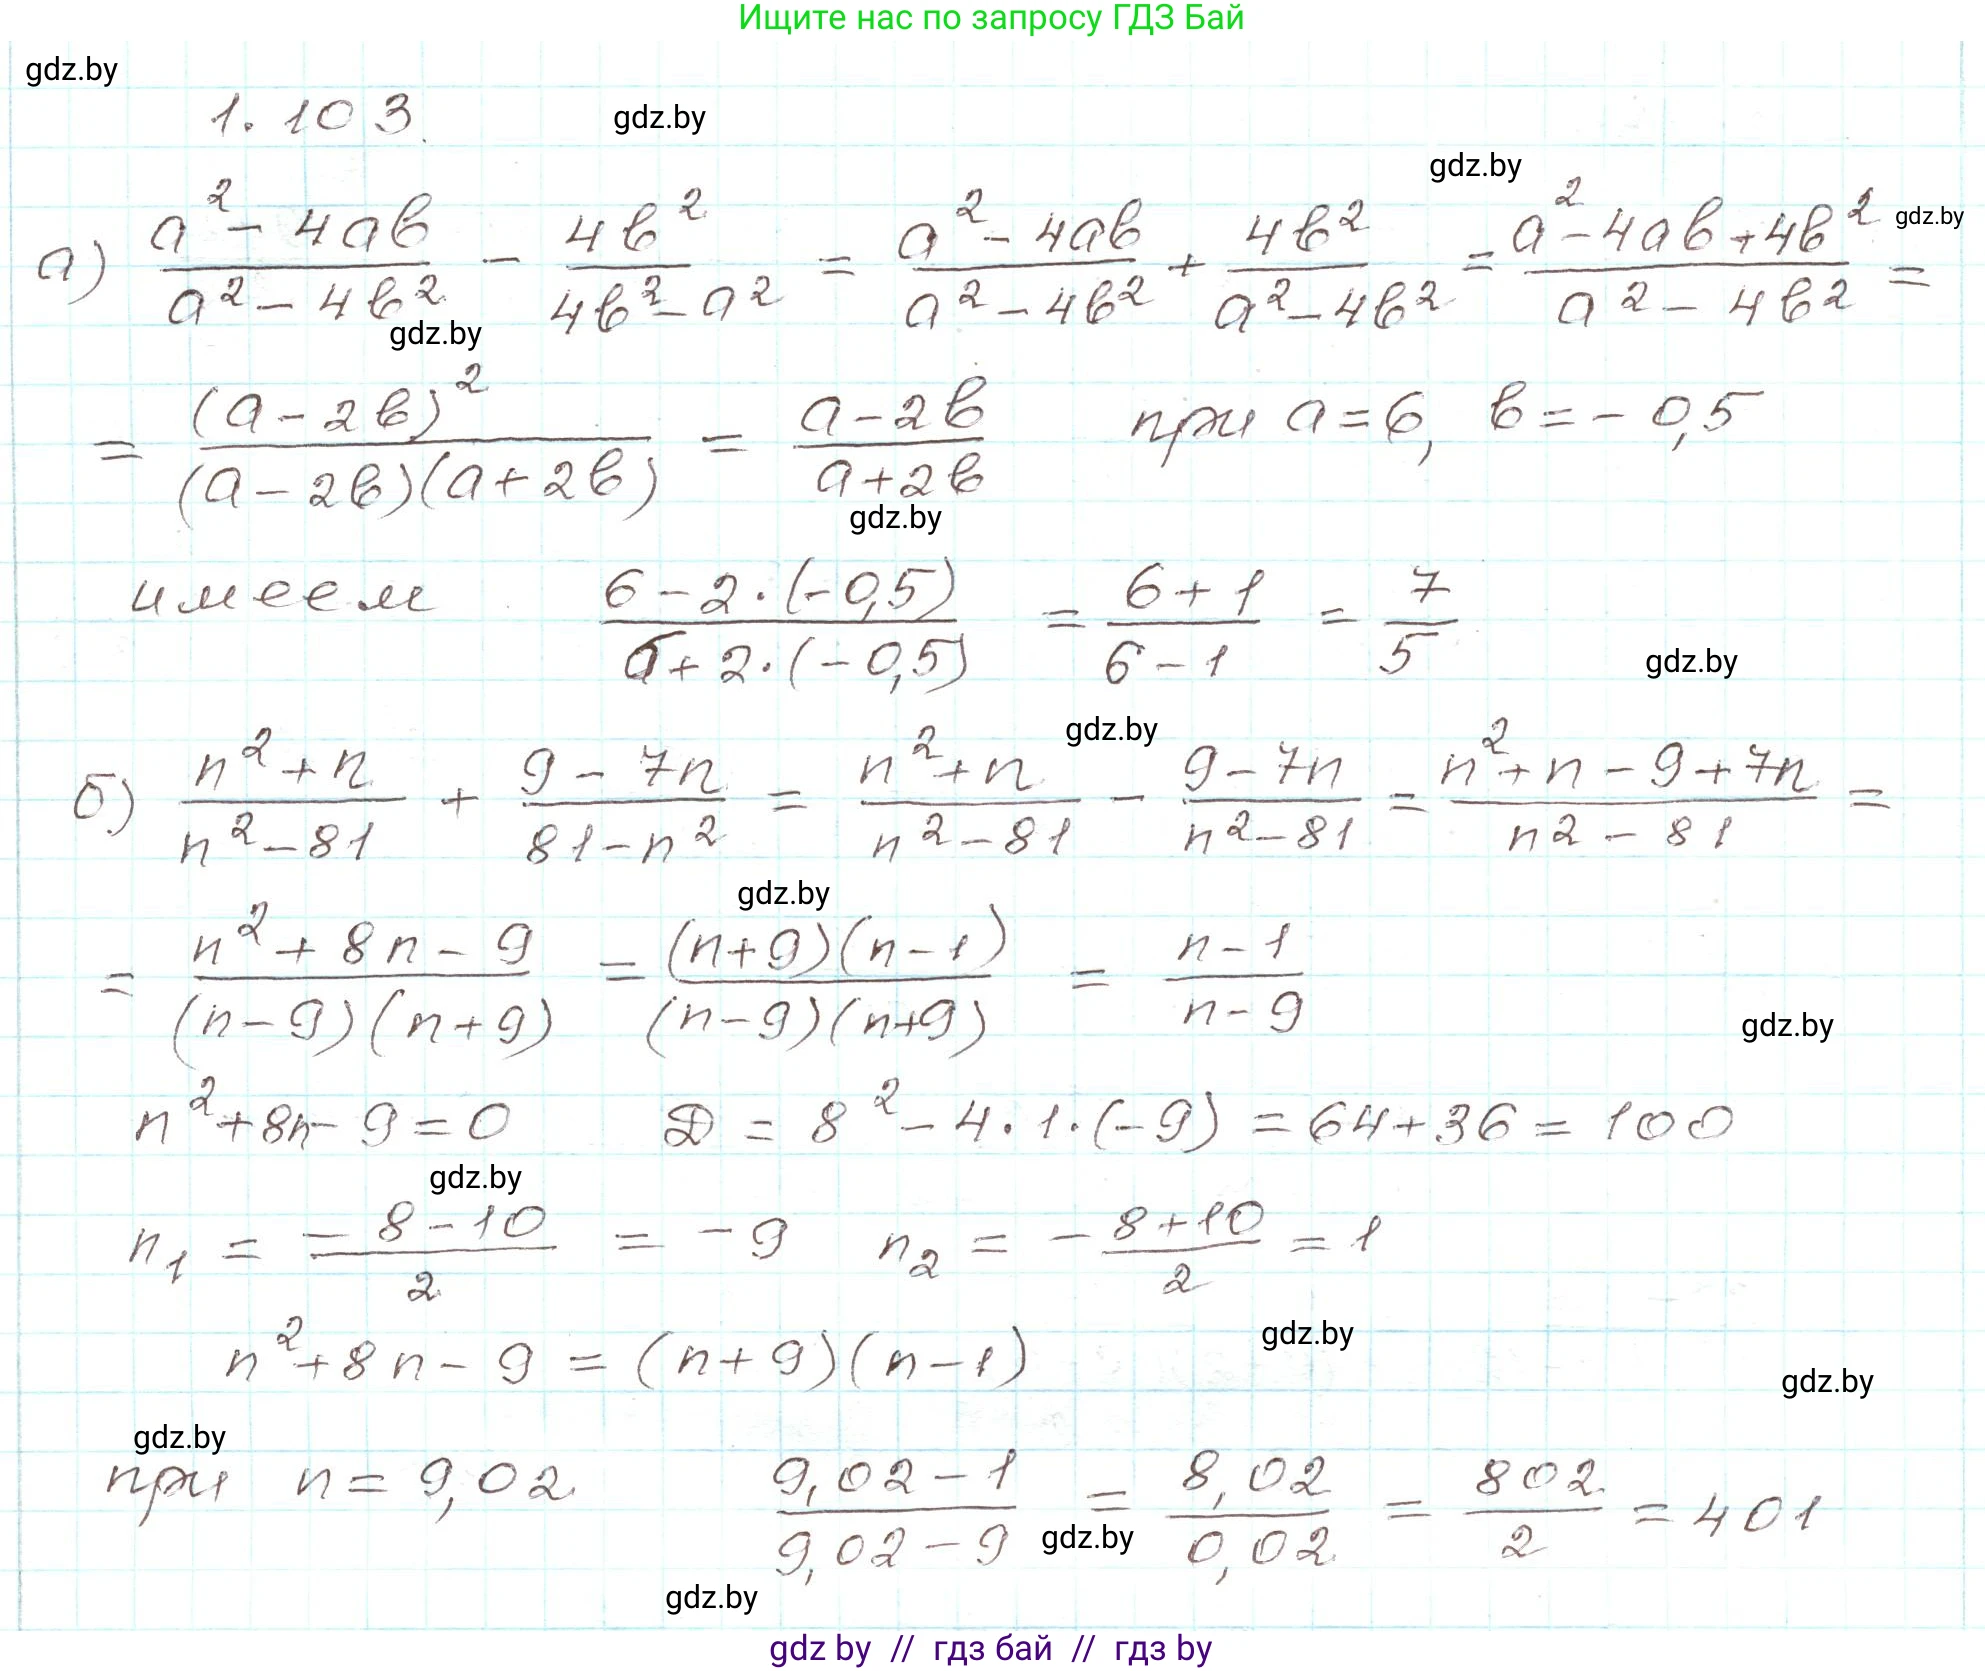 Ищите нас по запросу ГДЗ Бай
gdz.by
1.103.
gdz.by
gdz.by
а) (a² - 4ab)/(a² - 4b²) - 4b²/(4b² - a²) = (a² - 4ab)/(a² - 4b²) + 4b²/(a² - 4b²) = (a² - 4ab + 4b²)/(a² - 4b²) =
gdz.by
gdz.by
= (a - 2b)²/((a - 2b)(a + 2b)) = (a - 2b)/(a + 2b) при a = 6, b = - 0,5
gdz.by
имеем (6 - 2·(-0,5))/(6 + 2·(-0,5)) = (6 + 1)/(6 - 1) = 7/5
gdz.by
gdz.by
б) (n² + n)/(n² - 81) + (9 - 7n)/(81 - n²) = (n² + n)/(n² - 81) - (9 - 7n)/(n² - 81) = (n² + n - 9 + 7n)/(n² - 81) =
gdz.by
= (n² + 8n - 9)/((n - 9)(n + 9)) = ((n + 9)(n - 1))/((n - 9)(n + 9)) = (n - 1)/(n - 9)
gdz.by
n² + 8n - 9 = 0 D = 8² - 4·1·(-9) = 64 + 36 = 100
gdz.by
n₁ = (-8 - 10)/2 = -9 n₂ = (-8 + 10)/2 = 1
gdz.by
n² + 8n - 9 = (n + 9)(n - 1)
gdz.by
gdz.by
при n = 9,02 (9,02 - 1)/(9,02 - 9) = 8,02/0,02 = 802/2 = 401
gdz.by
gdz.by
gdz by // гдз бай // гдз by